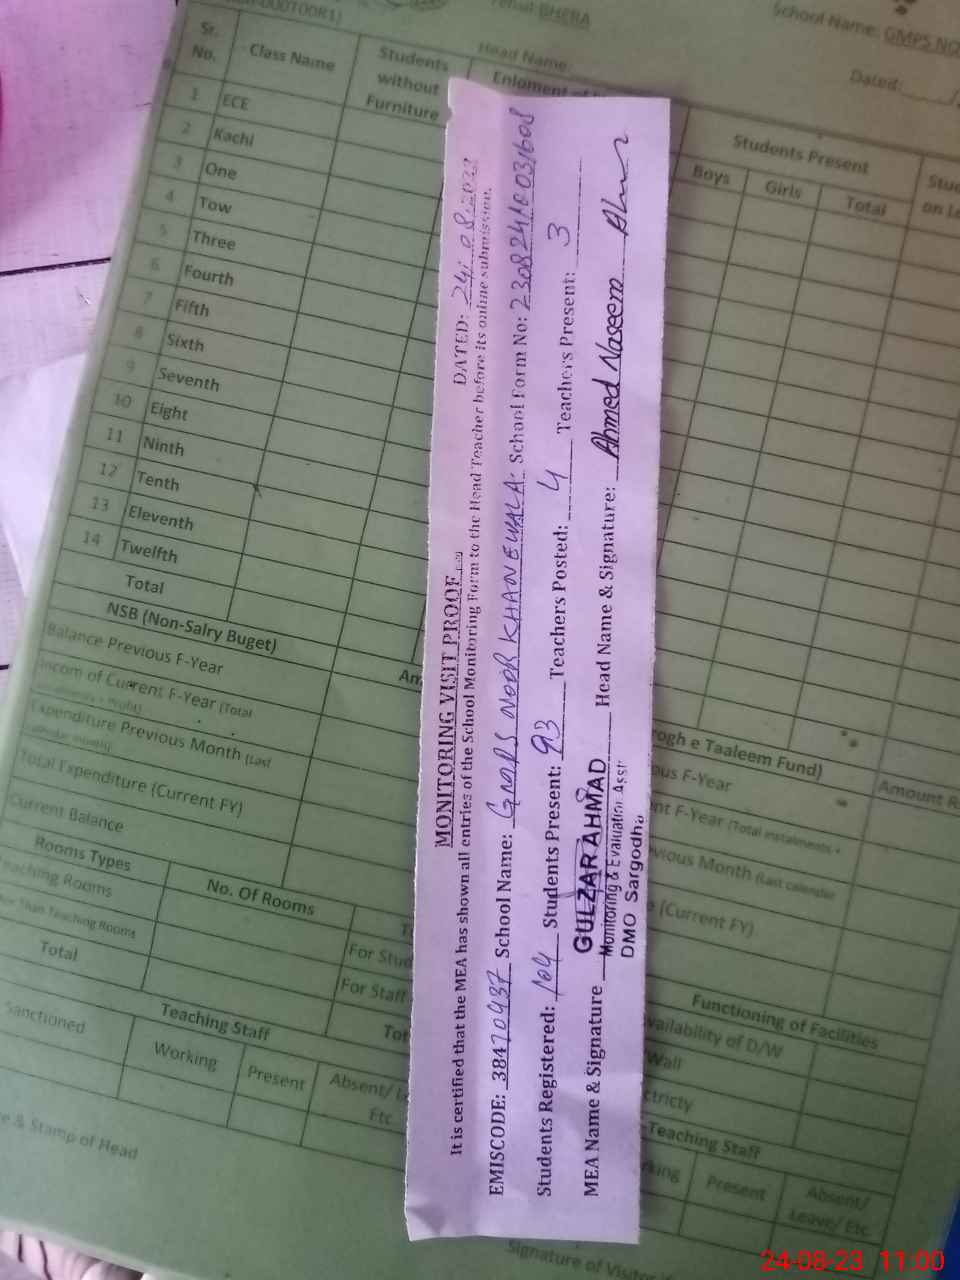 MONITORING VISIT PROOF
DATED: 24.08.2023
It is certified that the MEA has shown all entries of the School Monitoring Form to the Head Teacher before its online submission.
EMISCODE: 38410937 School Name: GMPS NOOR KHANEWALA School Form No: 23082410031608
Students Registered: 104 Students Present: 93 Teachers Posted: 4 Teachers Present: 3
MEA Name & Signature Head Name & Signature: Ahmed Naseem
GULZAR AHMAD
Monitoring & Evaluation Asst
DMO Sargodha
Tehsil BHERA
School Name: GMPS NO
Head Name:
Dated:
Sr. No. Class Name Students without Furniture Students Present
Boys Girls Total
1 ECE
2 Kachi
3 One
4 Tow
5 Three
6 Fourth
7 Fifth
8 Sixth
9 Seventh
10 Eight
11 Ninth
12 Tenth
13 Eleventh
14 Twelfth
Total
NSB (Non-Salry Buget)
Am
rogh e Taaleem Fund)
Amount R
Balance Previous F-Year
ous F-Year
Incom of Current F-Year (Total
nt F-Year (Total instalments +
Expenditure Previous Month (Last
vious Month (Last calendar
Total Expenditure (Current FY)
e (Current FY)
Current Balance
Rooms Types No. Of Rooms
eaching Rooms For Stud
er Than Teaching Rooms For Staff
Total Tot
Functioning of Facilities
vailability of D/W
Wall
ctricty
Teaching Staff
-Teaching Staff
Sanctioned Working Present Absent/ Le Etc
rking Present Absent/ Leave/ Etc
e & Stamp of Head
Signature of Visitor
24-08-23 11:00